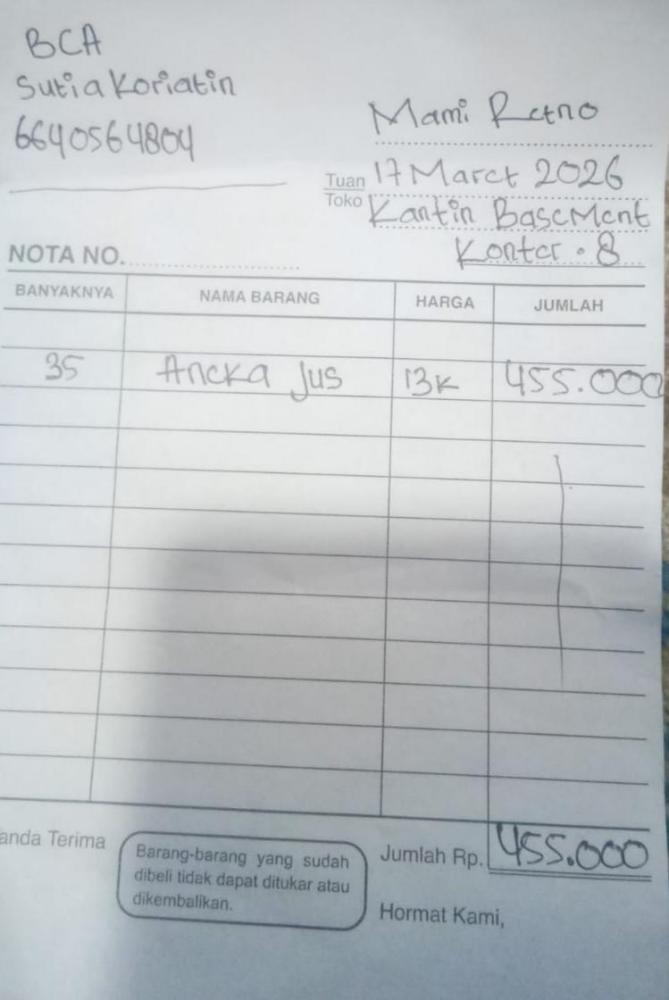 BCA
Sutia Koriatin
6640564804
Mami Retno
Tuan 17 Maret 2026
Toko Kantin Basement
Konter . 8
NOTA NO.
BANYAKNYA NAMA BARANG HARGA JUMLAH
35 Aneka Jus 13k 455.000
anda Terima
Barang-barang yang sudah
dibeli tidak dapat ditukar atau
dikembalikan.
Jumlah Rp. 455.000
Hormat Kami,